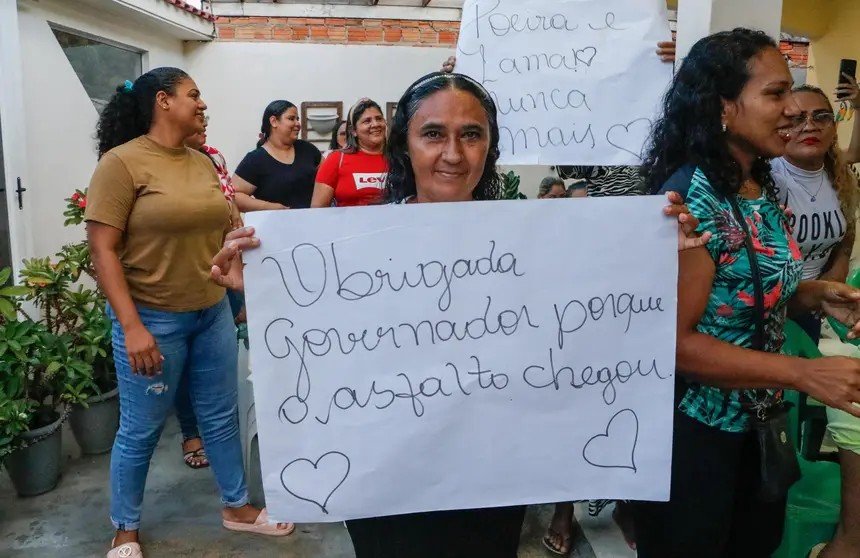 Poeira e
Lama
nunca
mais
LEVI
BROOKL
Obrigada
Governador porque
o asfalto chegou.